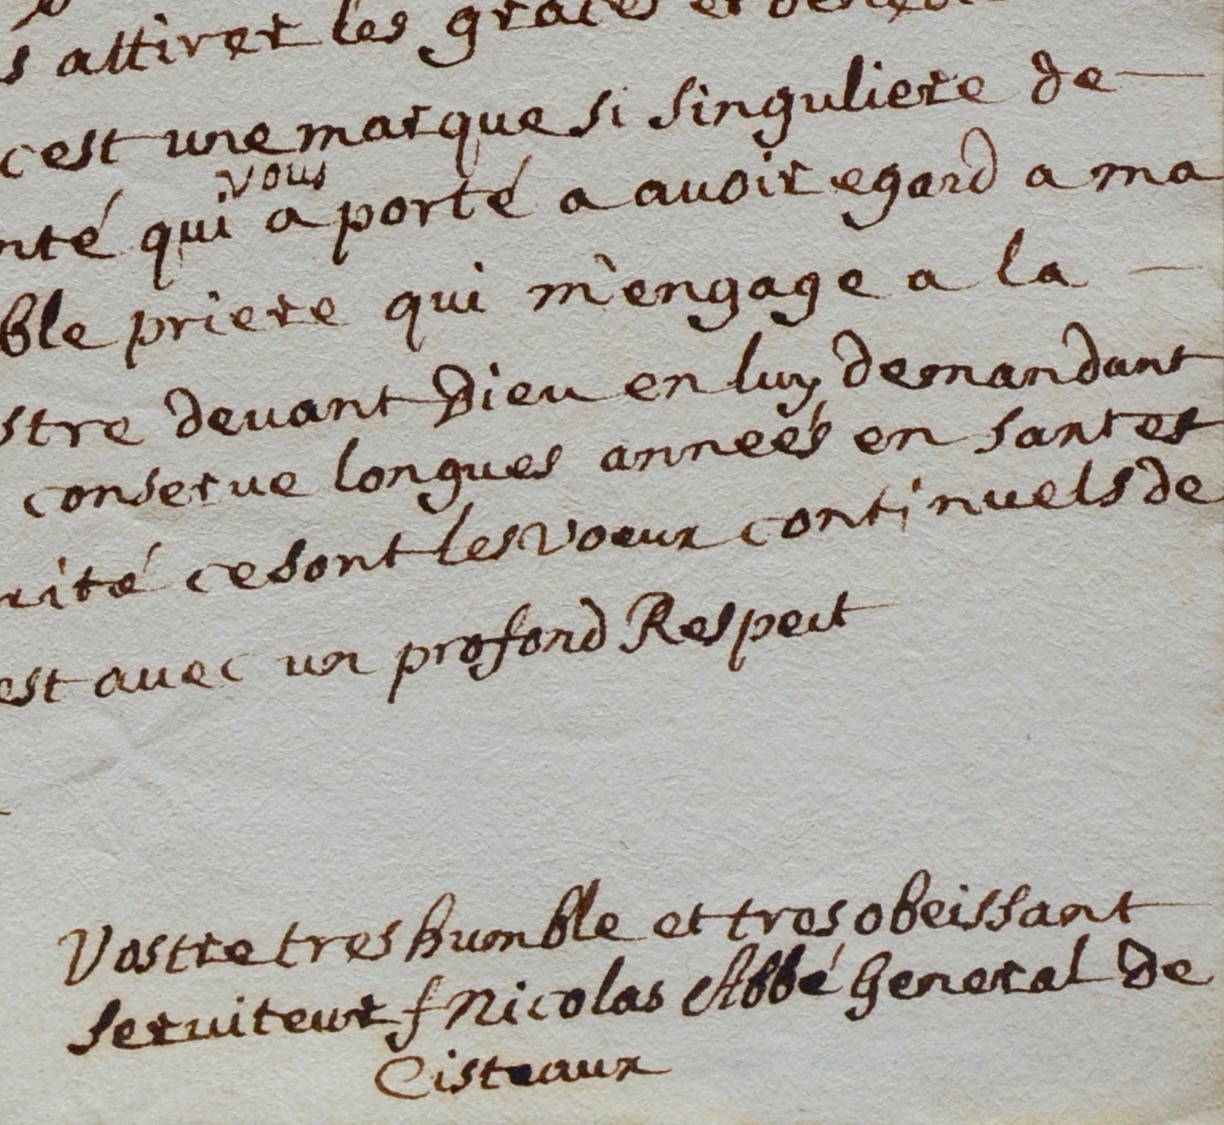 s attirer les graces et
cest une marque si singuliere de
nté qui vous a porté a avoir egard a ma
ble priere qui m'engage a la
stre devant Dieu en luy demandant
conserve longues années en santet
rité ce sont les voeux continuels de
est avec un profond Respect
Vostre tres humble et tres obeissant
serviteur f Nicolas Abbé General de
Cisteaux